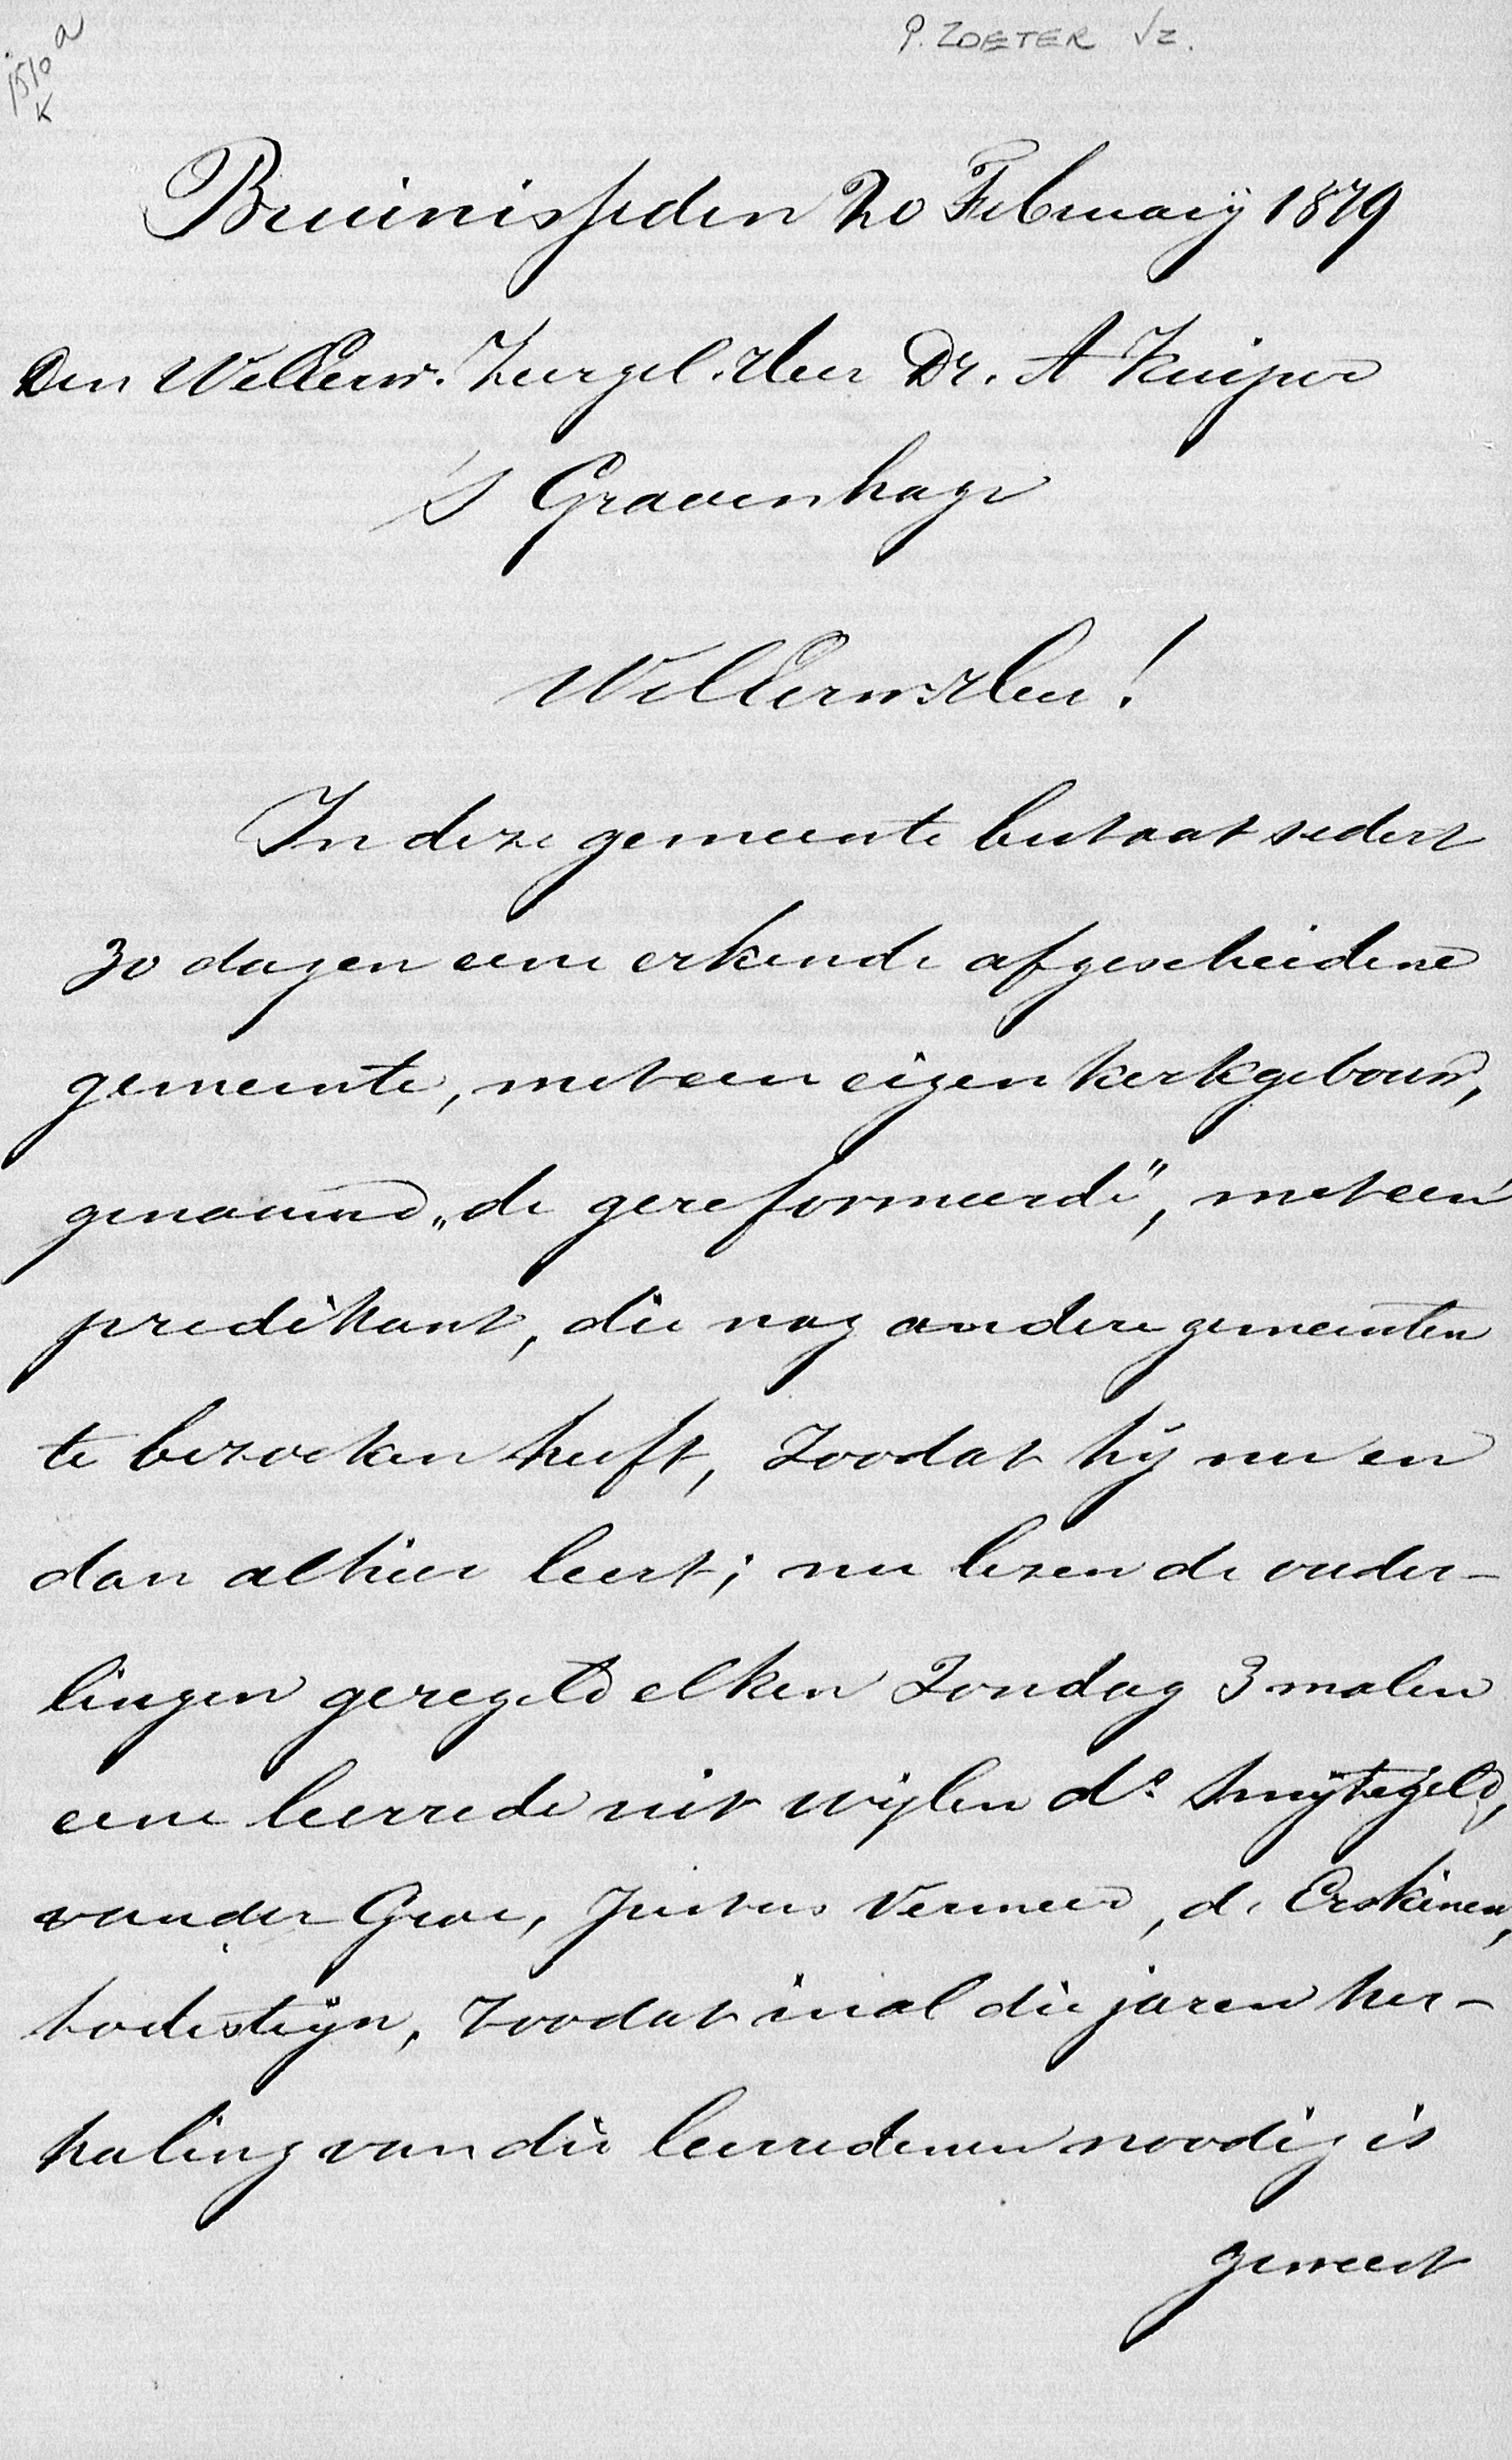 P. ZOETER Jz.
1510 a
K
Bruinisse den 20 February 1879
Den WelEerw. Zeergel. Heer Dr. A Kuiper
's Gravenhage
WelEerw. Heer!
In deze gemeente bestaat sedert
30 dagen eene erkende afgescheidene
gemeente, met een eigen kerkgebouw,
genaamd „de gereformeerde", met een
predikant, die nog andere gemeenten
te bezoeken heeft, zoodat hij nu en
dan alhier leert; nu lezen de ouder-
lingen geregeld elken Zondag 3 malen
eene leerrede uit wijlen ds Smijtegeld,
van der Groe, Justus Vermeer, de Erskinen,
Lodestijn, zoodat in al die jaren her-
haling van die leerredenen noodig is
geweest